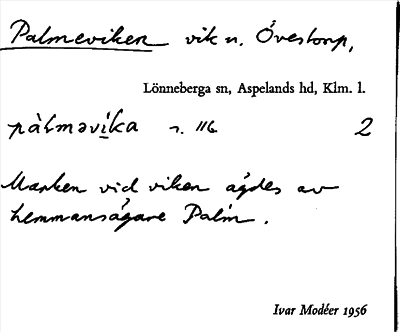 Palmeviken vik n. Övestorp,
Lönneberga sn, Aspelands hd, Klm. l.
pàlməvi̱ka s. 116 2
Marken vid viken ägdes av
hemmansägare Palm.
Ivar Modéer 1956